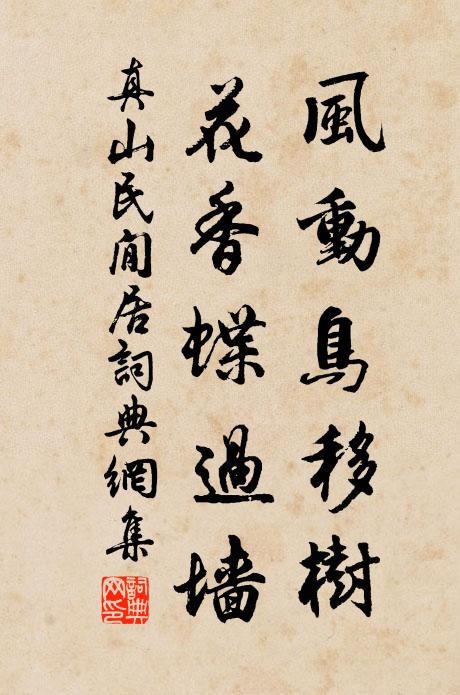 風動鳥移樹
花香蝶過墻
真山民閒居詞典網集
詞典網印